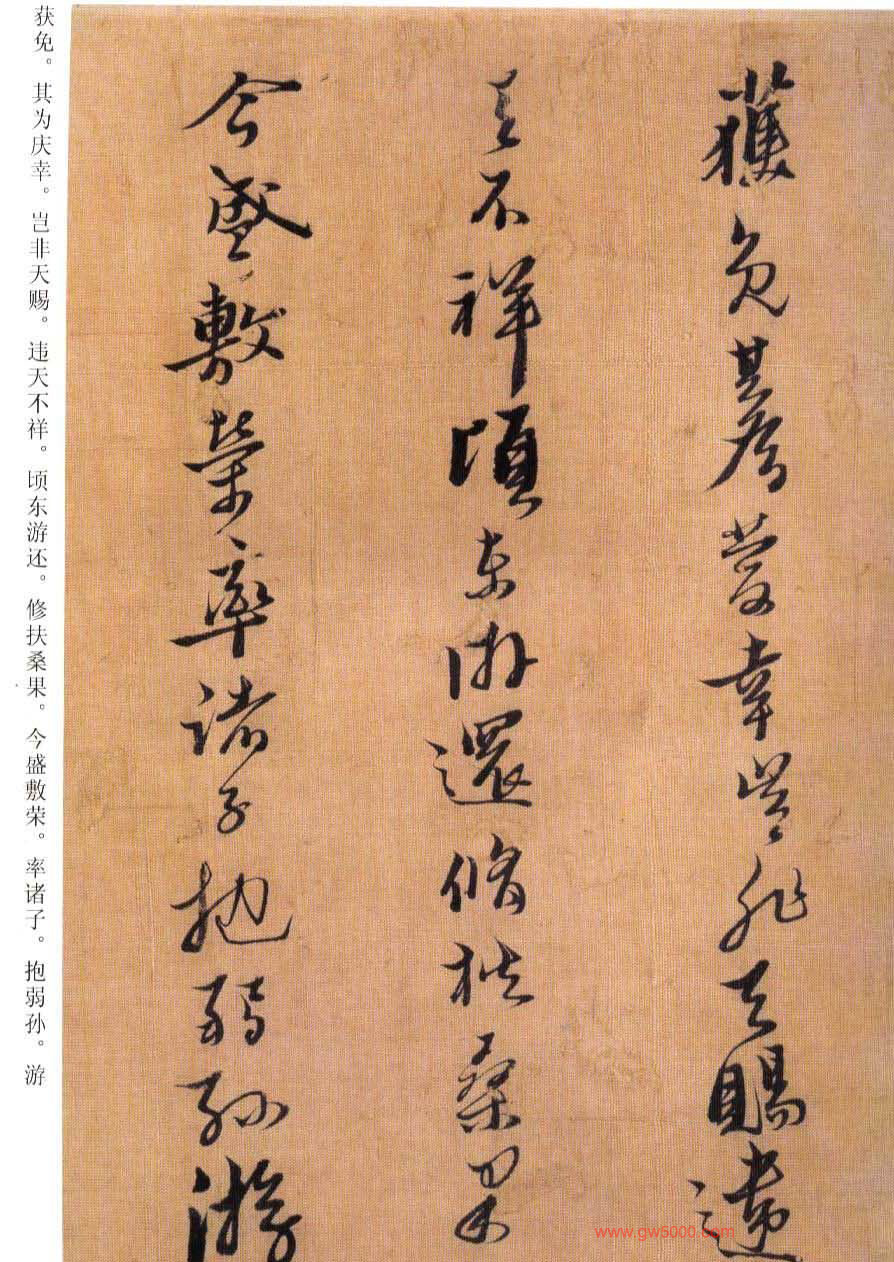 獲免其為慶幸豈非天賜違
天不祥頃東游還脩植桑果
今盛敷榮率諸子抱弱孫游
获免。其为庆幸。岂非天赐。违天不祥。顷东游还。修扶桑果。今盛敷荣。率诸子。抱弱孙。游
www.gw5000.com